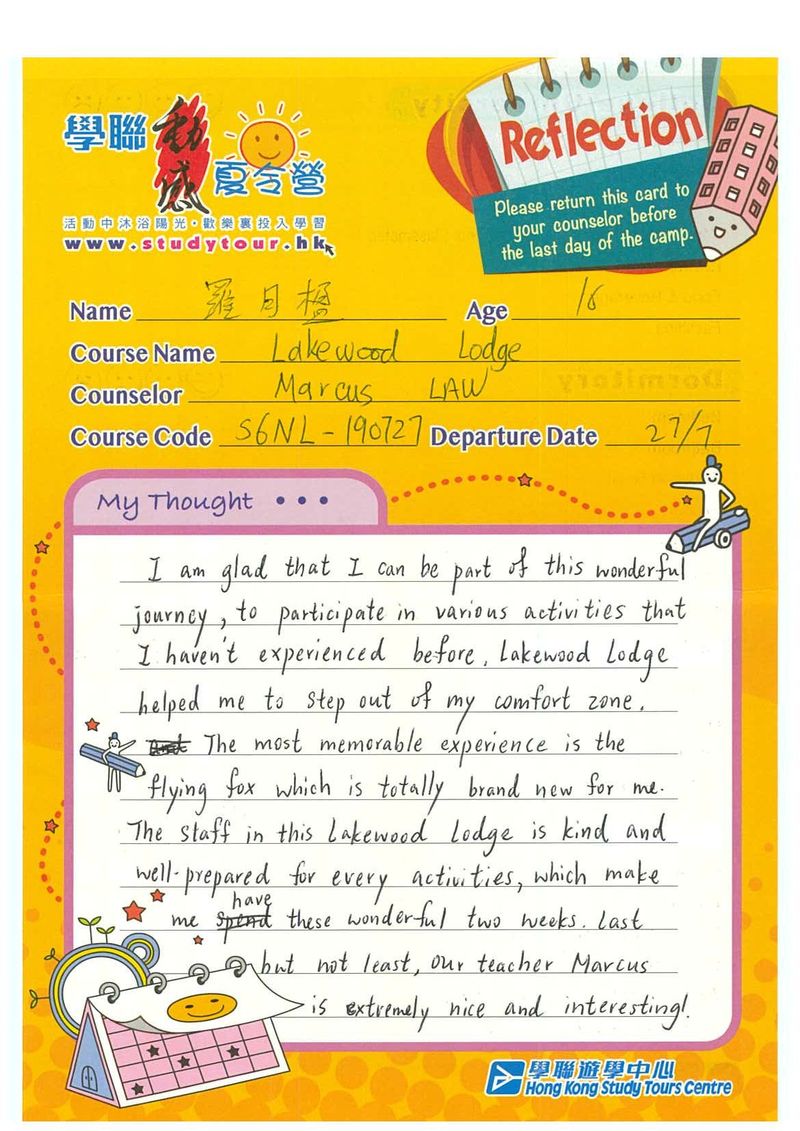 學聯動感夏令營
活動中沐浴陽光・歡樂裏投入學習
www.studytour.hk
Reflection
Please return this card to
your counselor before
the last day of the camp.
Name 羅月楹 Age 16
Course Name Lakewood Lodge
Counselor Marcus LAW
Course Code S6NL-190727 Departure Date 27/7
My Thought • • •
I am glad that I can be part of this wonderful
journey, to participate in various activities that
I haven't experienced before. Lakewood Lodge
helped me to step out of my comfort zone.
The most memorable experience is the
flying fox which is totally brand new for me.
The staff in this Lakewood Lodge is kind and
well-prepared for every activities, which make
me have these wonderful two weeks. Last
but not least, our teacher Marcus
is extremely nice and interesting!
學聯遊學中心
Hong Kong Study Tours Centre